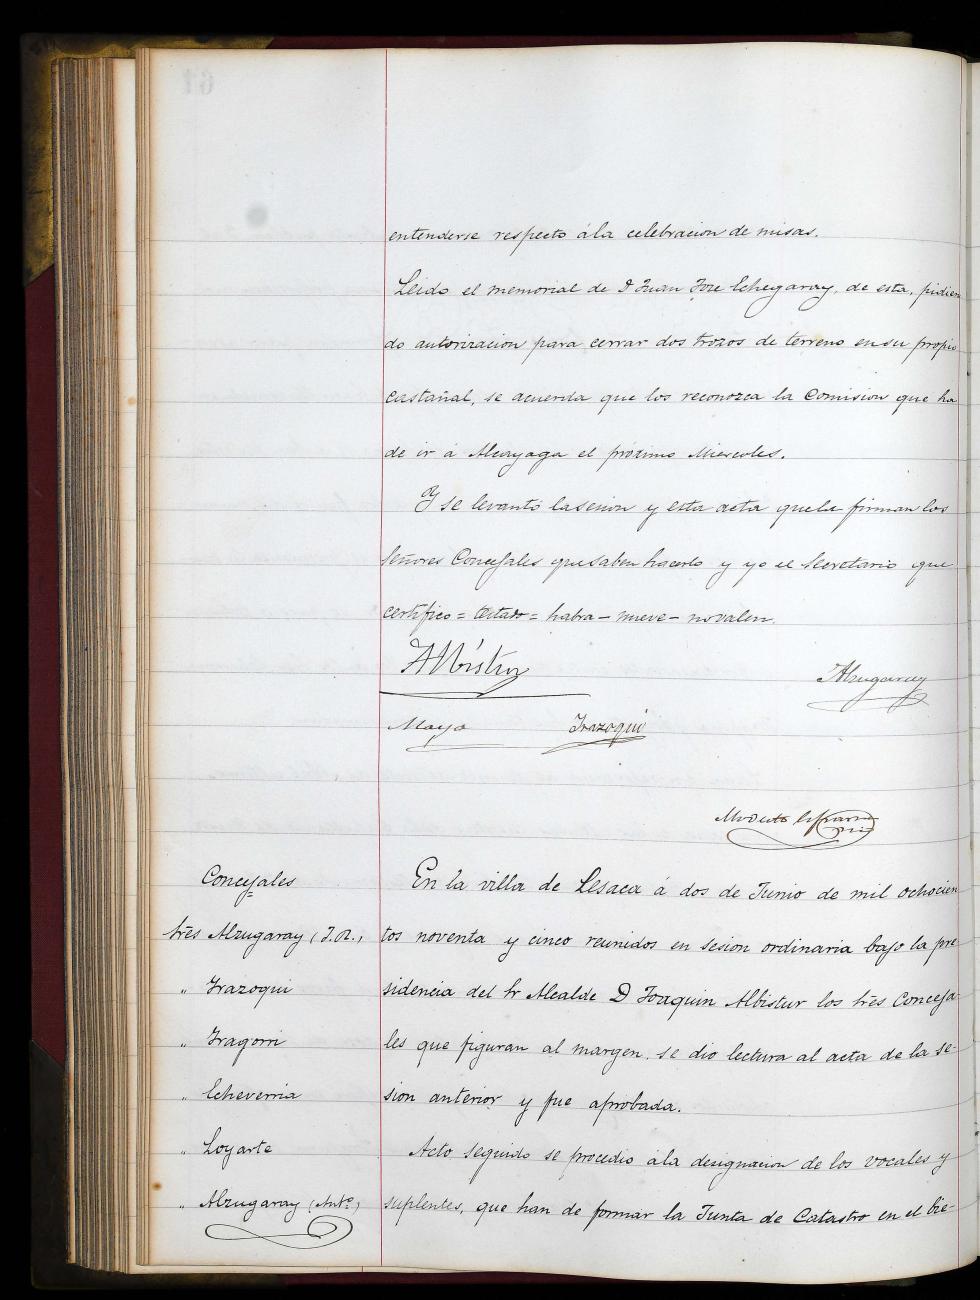 entenderse respecto á la celebracion de misas.
Leido el memorial de D Juan Jose Echegaray, de esta, pidien
do autorizacion para cerrar dos trozos de terreno en su propio
castañal, se acuerda que los reconozca la Comision que ha
de ir á Alcayaga el próximo Miercoles.
Y se levantó la sesion y esta acta que la firman los
señores Concejales que saben hacerlo y yo el Secretario que
certifico = testado = habra - nueve - no valen.
Albistur
Alzugaray
Maya Irazoqui
Modesto
Concejales
En la villa de Lesaca á dos de Junio de mil ochocien
tos noventa y cinco reunidos en sesion ordinaria bajo la pre
sidencia del Sr Alcalde D Joaquin Albistur los Sres Conceja-
les que figuran al margen, se dio lectura al acta de la se-
sion anterior y fue aprobada.
Acto seguido se procedio a la designacion de los vocales y
suplentes, que han de formar la Junta de Catastro en el bie-
Sres Alzugaray (J.R.)
" Irazoqui
" Iragorri
" Echeverria
" Loyarte
" Alzugaray (Anto)